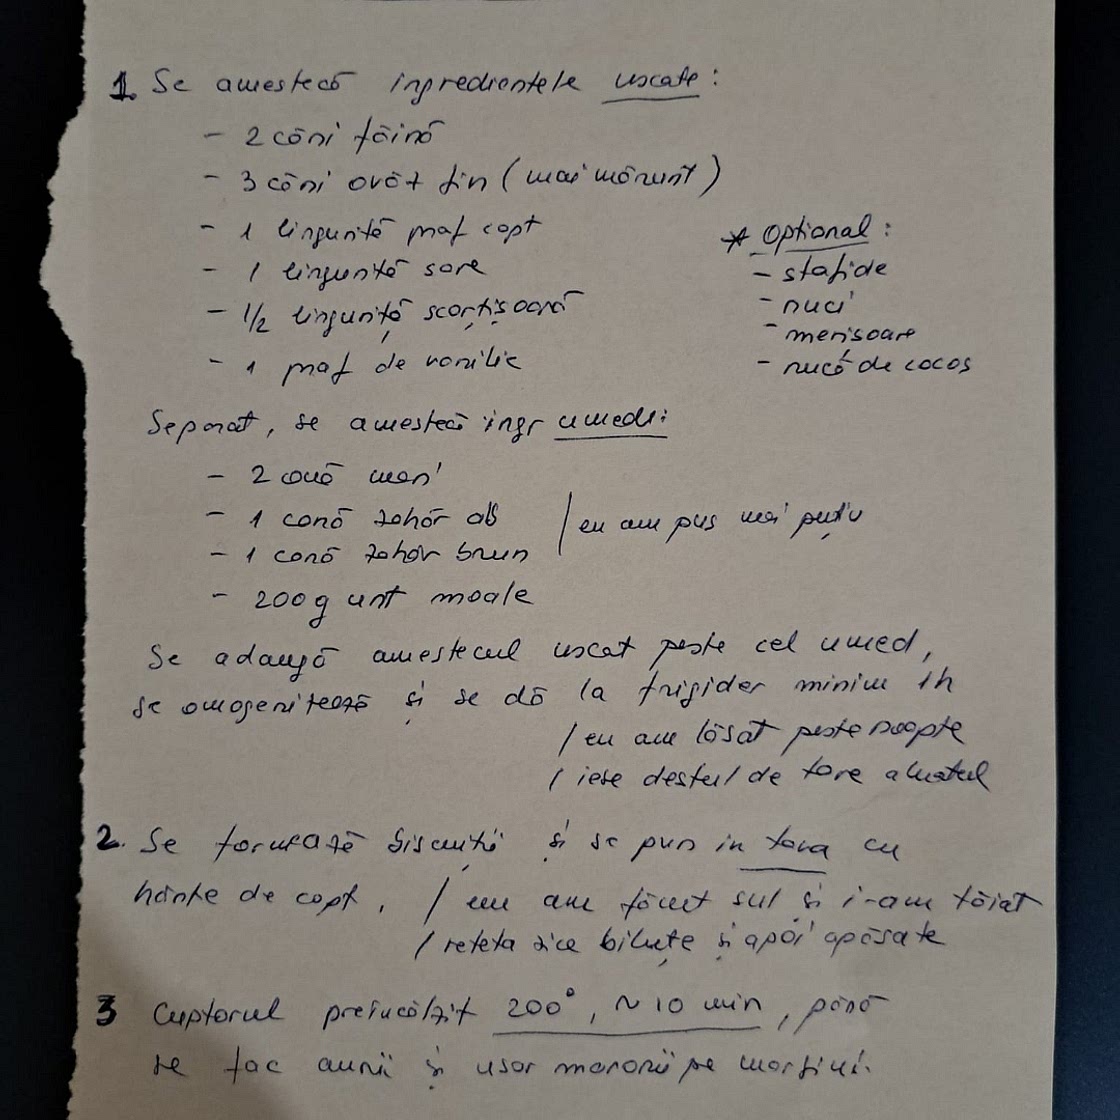 1. Se amestecă ingredientele uscate:
- 2 căni făină
- 3 căni ovăz fin (mai mărunt)
- 1 linguriță praf copt
- 1 linguriță sare
- 1/2 linguriță scorțișoară
- 1 praf de vanilie
* Optional:
- stafide
- nuci
- merisoare
- nucă de cocos
Separat, se amestecă ingr umede:
- 2 ouă mari
- 1 cană zahăr alb
- 1 cană zahăr brun
/ eu am pus mai puțin
- 200g unt moale
Se adaugă amestecul uscat peste cel umed,
se omogenizează și se dă la frigider minim 1h
/ eu am lăsat peste noapte
/ iese destul de tare aluatul
2. Se formează biscuiții și se pun in tava cu
hârtie de copt. / eu am făcut sul și i-am tăiat
/ reteta zice biluțe și apoi apăsate
3 Cuptorul preîncălzit 200°, ~ 10 min, până
se fac aurii și usor maronii pe margini.